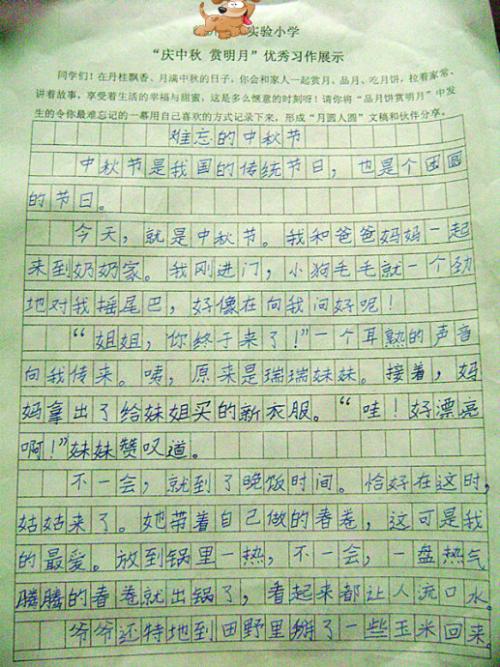 实验小学
“庆中秋 赏明月”优秀习作展示
同学们！在丹桂飘香、月满中秋的日子，你会和家人一起赏月、品月、吃月饼，拉着家常、
讲着故事，享受着生活的幸福与甜蜜，这是多么惬意的时刻呀！请你将“品月饼赏明月”中发
生的令你最难忘记的一幕用自己喜欢的方式记录下来，形成“月圆人圆”文稿和伙伴分享。
难忘的中秋节
中秋节是我国的传统节日，也是个团圆
的节日。
今天，就是中秋节。我和爸爸妈妈一起
来到奶奶家。我刚进门，小狗毛毛就一个劲
地对我摇尾巴，好像在向我问好呢！
“姐姐，你终于来了！”一个耳熟的声音
向我传来。咦，原来是瑞瑞妹妹。接着，妈
妈拿出了给妹姐买的新衣服。“哇！好漂亮
啊！”妹妹赞叹道。
不一会，就到了晚饭时间。恰好在这时，
姑姑来了。她带着自己做的春卷，这可是我
的最爱。放到锅里一热，不一会，一盘热气
腾腾的春卷就出锅了，看起来都让人流口水。
爷爷还特地到田野里掰了一些玉米回来。